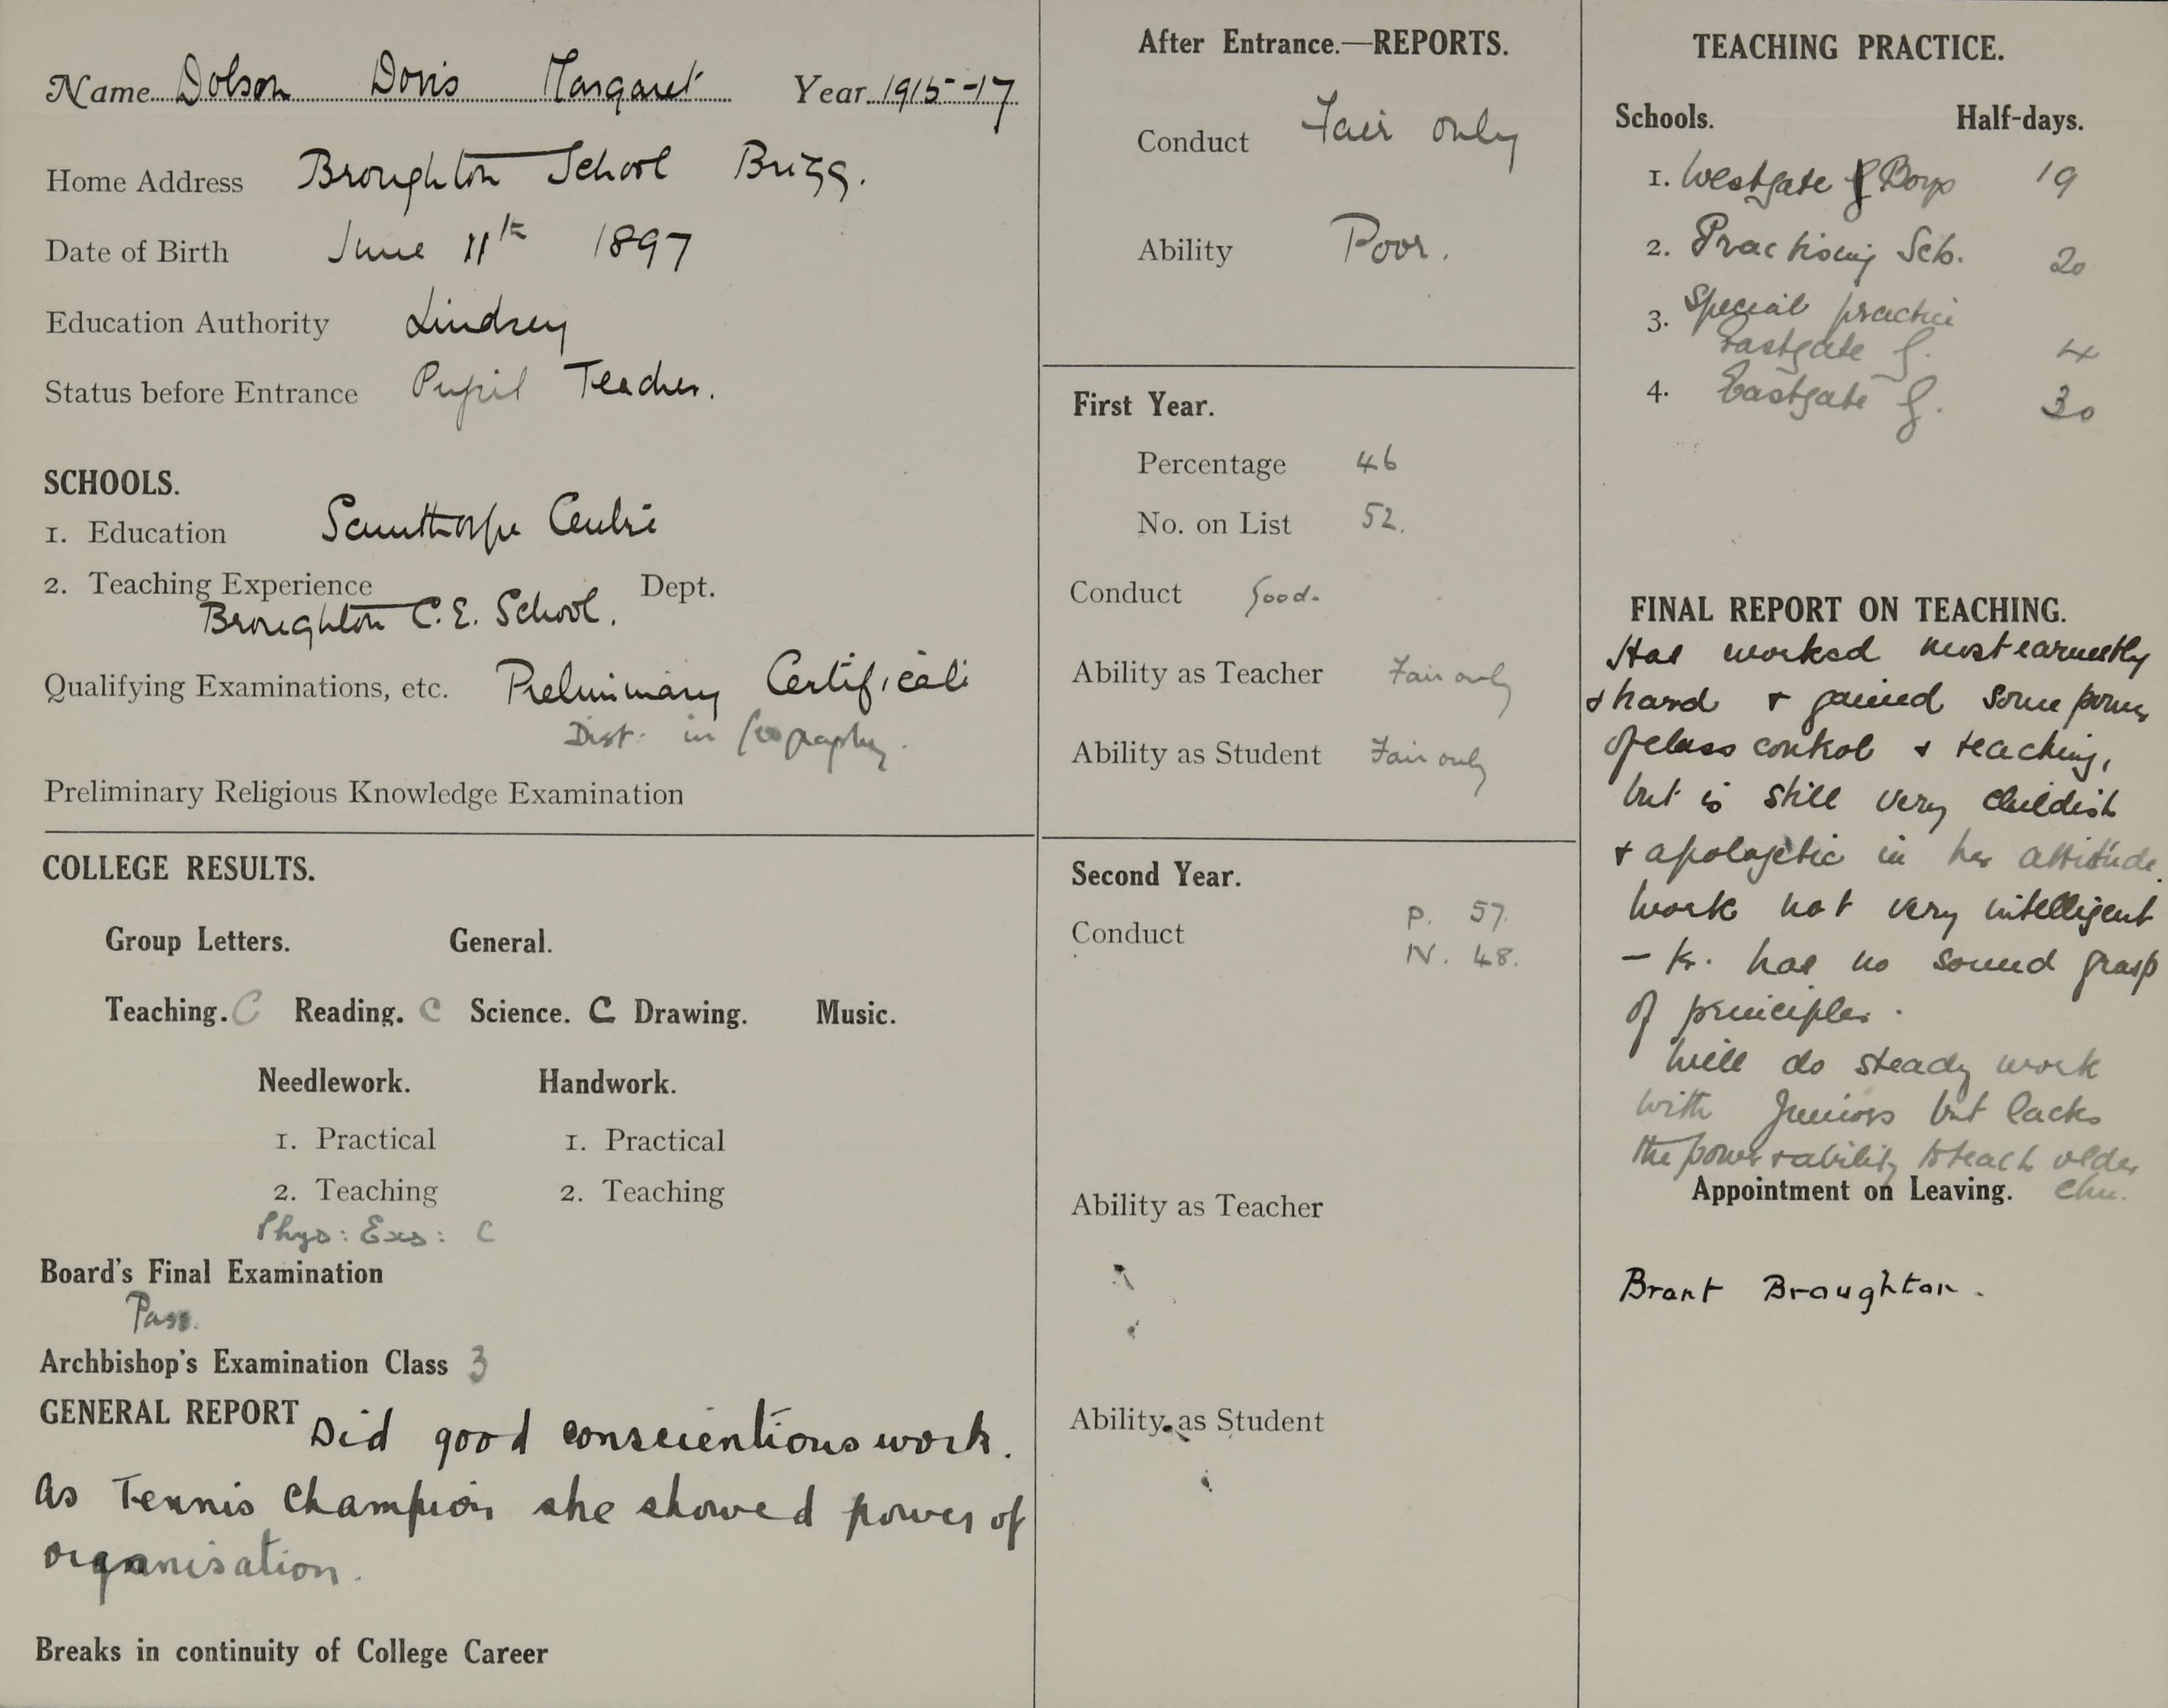 Name Dolson Doris Margaret Year 1915-17
Home Address Broughton School Brigg.
Date of Birth June 11th 1897
Education Authority Lindsey
Status before Entrance Pupil Teacher.
SCHOOLS.
1. Education Scunthorpe Centre
2. Teaching Experience Dept.
Broughton C.E. School.
Qualifying Examinations, etc. Preliminary Certificate
Dist. in Geography.
Preliminary Religious Knowledge Examination
COLLEGE RESULTS.
Group Letters. General.
Teaching. C Reading. C Science. C Drawing. Music.
Needlework. Handwork.
1. Practical 1. Practical
2. Teaching 2. Teaching
Phys: Exs: C
Board's Final Examination
Pass.
Archbishop's Examination Class 3
GENERAL REPORT Did good conscientious work.
As Tennis Champion she showed power of
organisation.
Breaks in continuity of College Career
After Entrance.—REPORTS.
Conduct Fair only
Ability Poor.
First Year.
Percentage 46
No. on List 52.
Conduct Good.
Ability as Teacher Fair only
Ability as Student Fair only
Second Year.
P. 57.
Conduct
N. 48.
Ability as Teacher
Ability as Student
TEACHING PRACTICE.
Schools. Half-days.
1. Westgate Boys 19
2. Practising Sch. 20
3. Special practice
Eastgate G. 4
4. Eastgate G. 30
FINAL REPORT ON TEACHING.
Has worked most earnestly
& hard & gained some power
of class control & teaching,
but is still very childish
& apologetic in her attitude.
Work not very intelligent
– has no sound grasp
of principles.
Will do steady work
with Juniors but lacks
the power & ability to teach older
Appointment on Leaving. chn.
Brant Broughton.